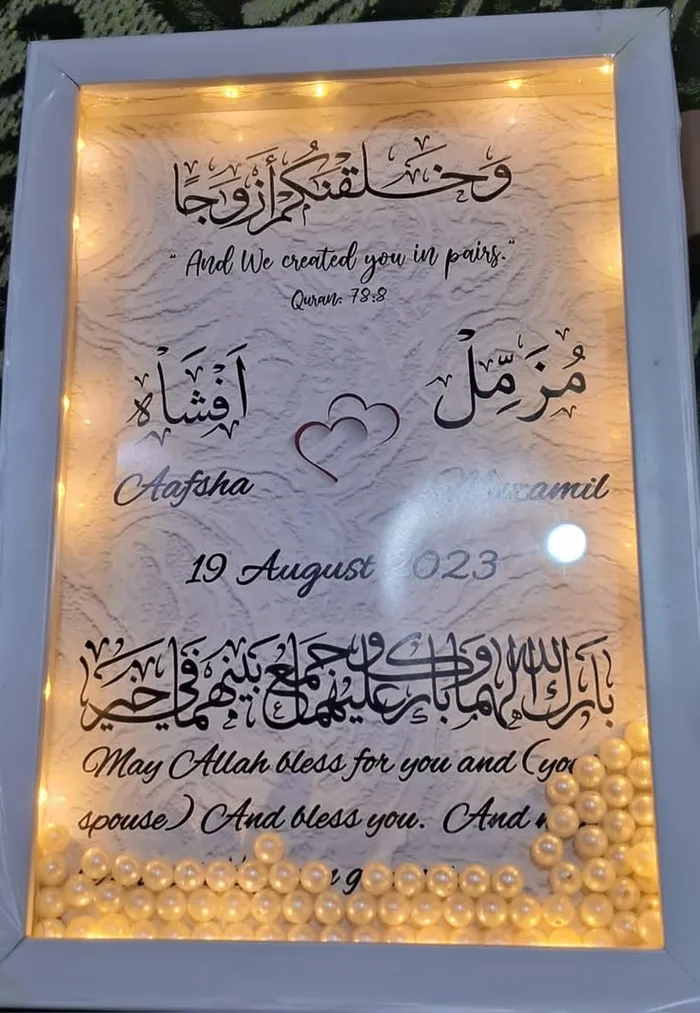 وَخَلَقْنَكُمْ أَزْوَجًا
" And We created you in pairs."
Quran: 78:8
اَفشَاہ مُزَمِّل
Aafsha Muzamil
19 August 2023
بَارَكَ اللهُ لَهُمَا وَبَارَكَ عَلَيْهُمَا وَجَمَعَ بَيْنَهُمَا فِي خَيْرٍ
May Allah bless for you and (you
spouse) And bless you. And